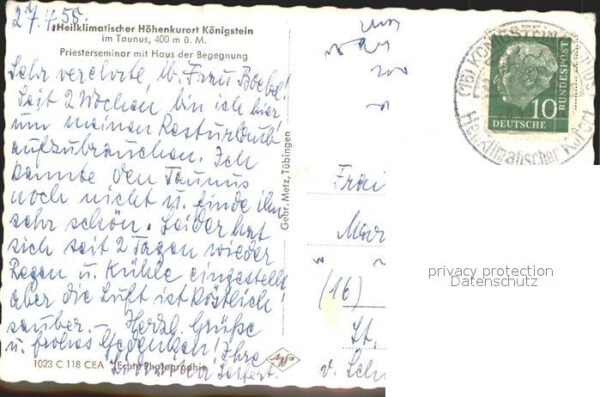 27.7.55.
Heilklimatischer Höhenkurort Königstein
im Taunus, 400 m ü. M.
Priesterseminar mit Haus der Begegnung
Sehr verehrte, lb. Frau Boebel!
Seit 2 Wochen bin ich hier,
um meinen Resturlaub
aufzubrauchen. Ich
kannte den Taunus
noch nicht u. finde ihn
sehr schön. Leider hat
sich seit 2 Tagen wieder
Regen u. Kühle eingestellt
aber die Luft ist köstlich
sauber. – Herzl. Grüße
u. frohes Gedenken! Ihre
Seifert.
1023 C 118 CEA Echte Photographie
Gebr. Metz, Tübingen
(16) KÖNIGSTEIN
Heilklimatischer Kurort
10
DEUTSCHE
BUNDESPOST
Frau
Mar
(16)
St.
v.
privacy protection
Datenschutz